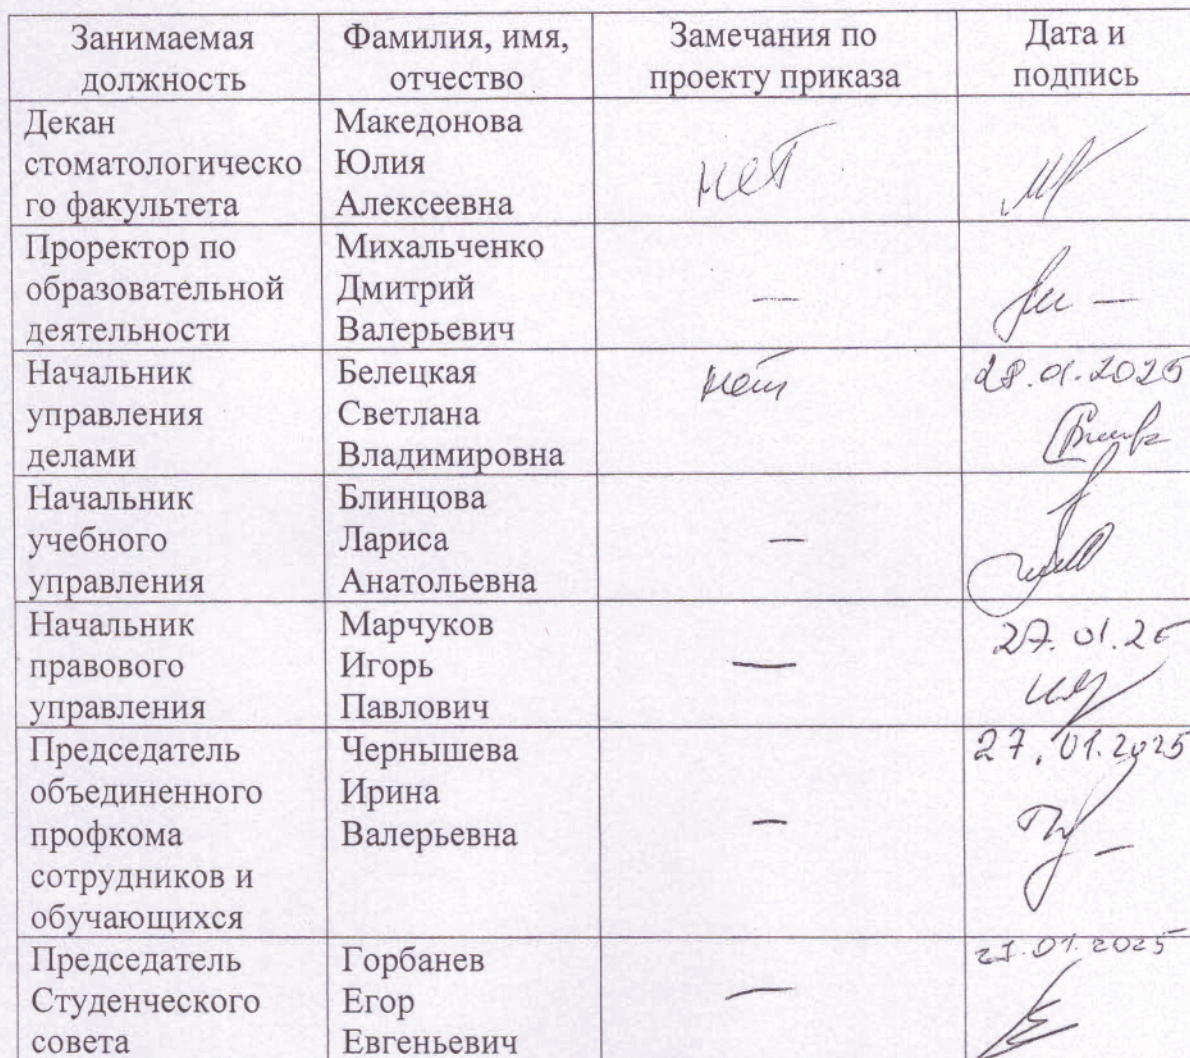 Занимаемая должность
Фамилия, имя, отчество
Замечания по проекту приказа
Дата и подпись
Декан
стоматологическо
го факультета
Македонова
Юлия
Алексеевна
нет
Проректор по
образовательной
деятельности
Михальченко
Дмитрий
Валерьевич
—
Начальник
управления
делами
Белецкая
Светлана
Владимировна
нет
28.01.2025
Начальник
учебного
управления
Блинцова
Лариса
Анатольевна
—
Начальник
правового
управления
Марчуков
Игорь
Павлович
—
27.01.25
Председатель
объединенного
профкома
сотрудников и
обучающихся
Чернышева
Ирина
Валерьевна
—
27.01.2025
Председатель
Студенческого
совета
Горбанев
Егор
Евгеньевич
—
27.01.2025